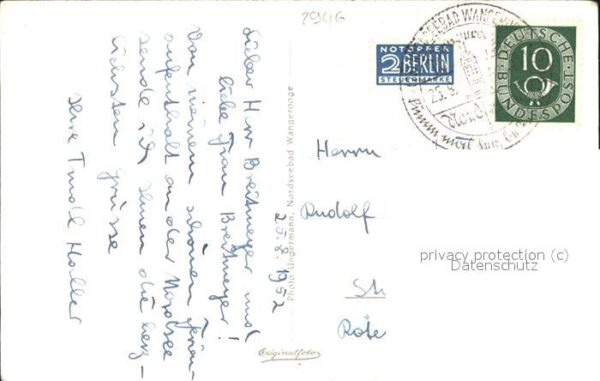 2946
25.8.1952
Lieber Herr Breitmeyer und
liebe Frau Breitmeyer!
Von meinem schönen Ferien-
aufenthalt an der Nordsee
sende ich Ihnen die herz-
lichsten Grüsse
Ihre Trudl Holler
Photo Jungermann, Nordseebad Wangerooge
Originalfoto
NOTOPFER
2 BERLIN
STEUERMARKE
NORDSEEBAD WANGEROOGE
25.8.
DEUTSCHE
BUNDESPOST
10
Herrn
Rudolf
St
Rote
privacy protection (c)
Datenschutz